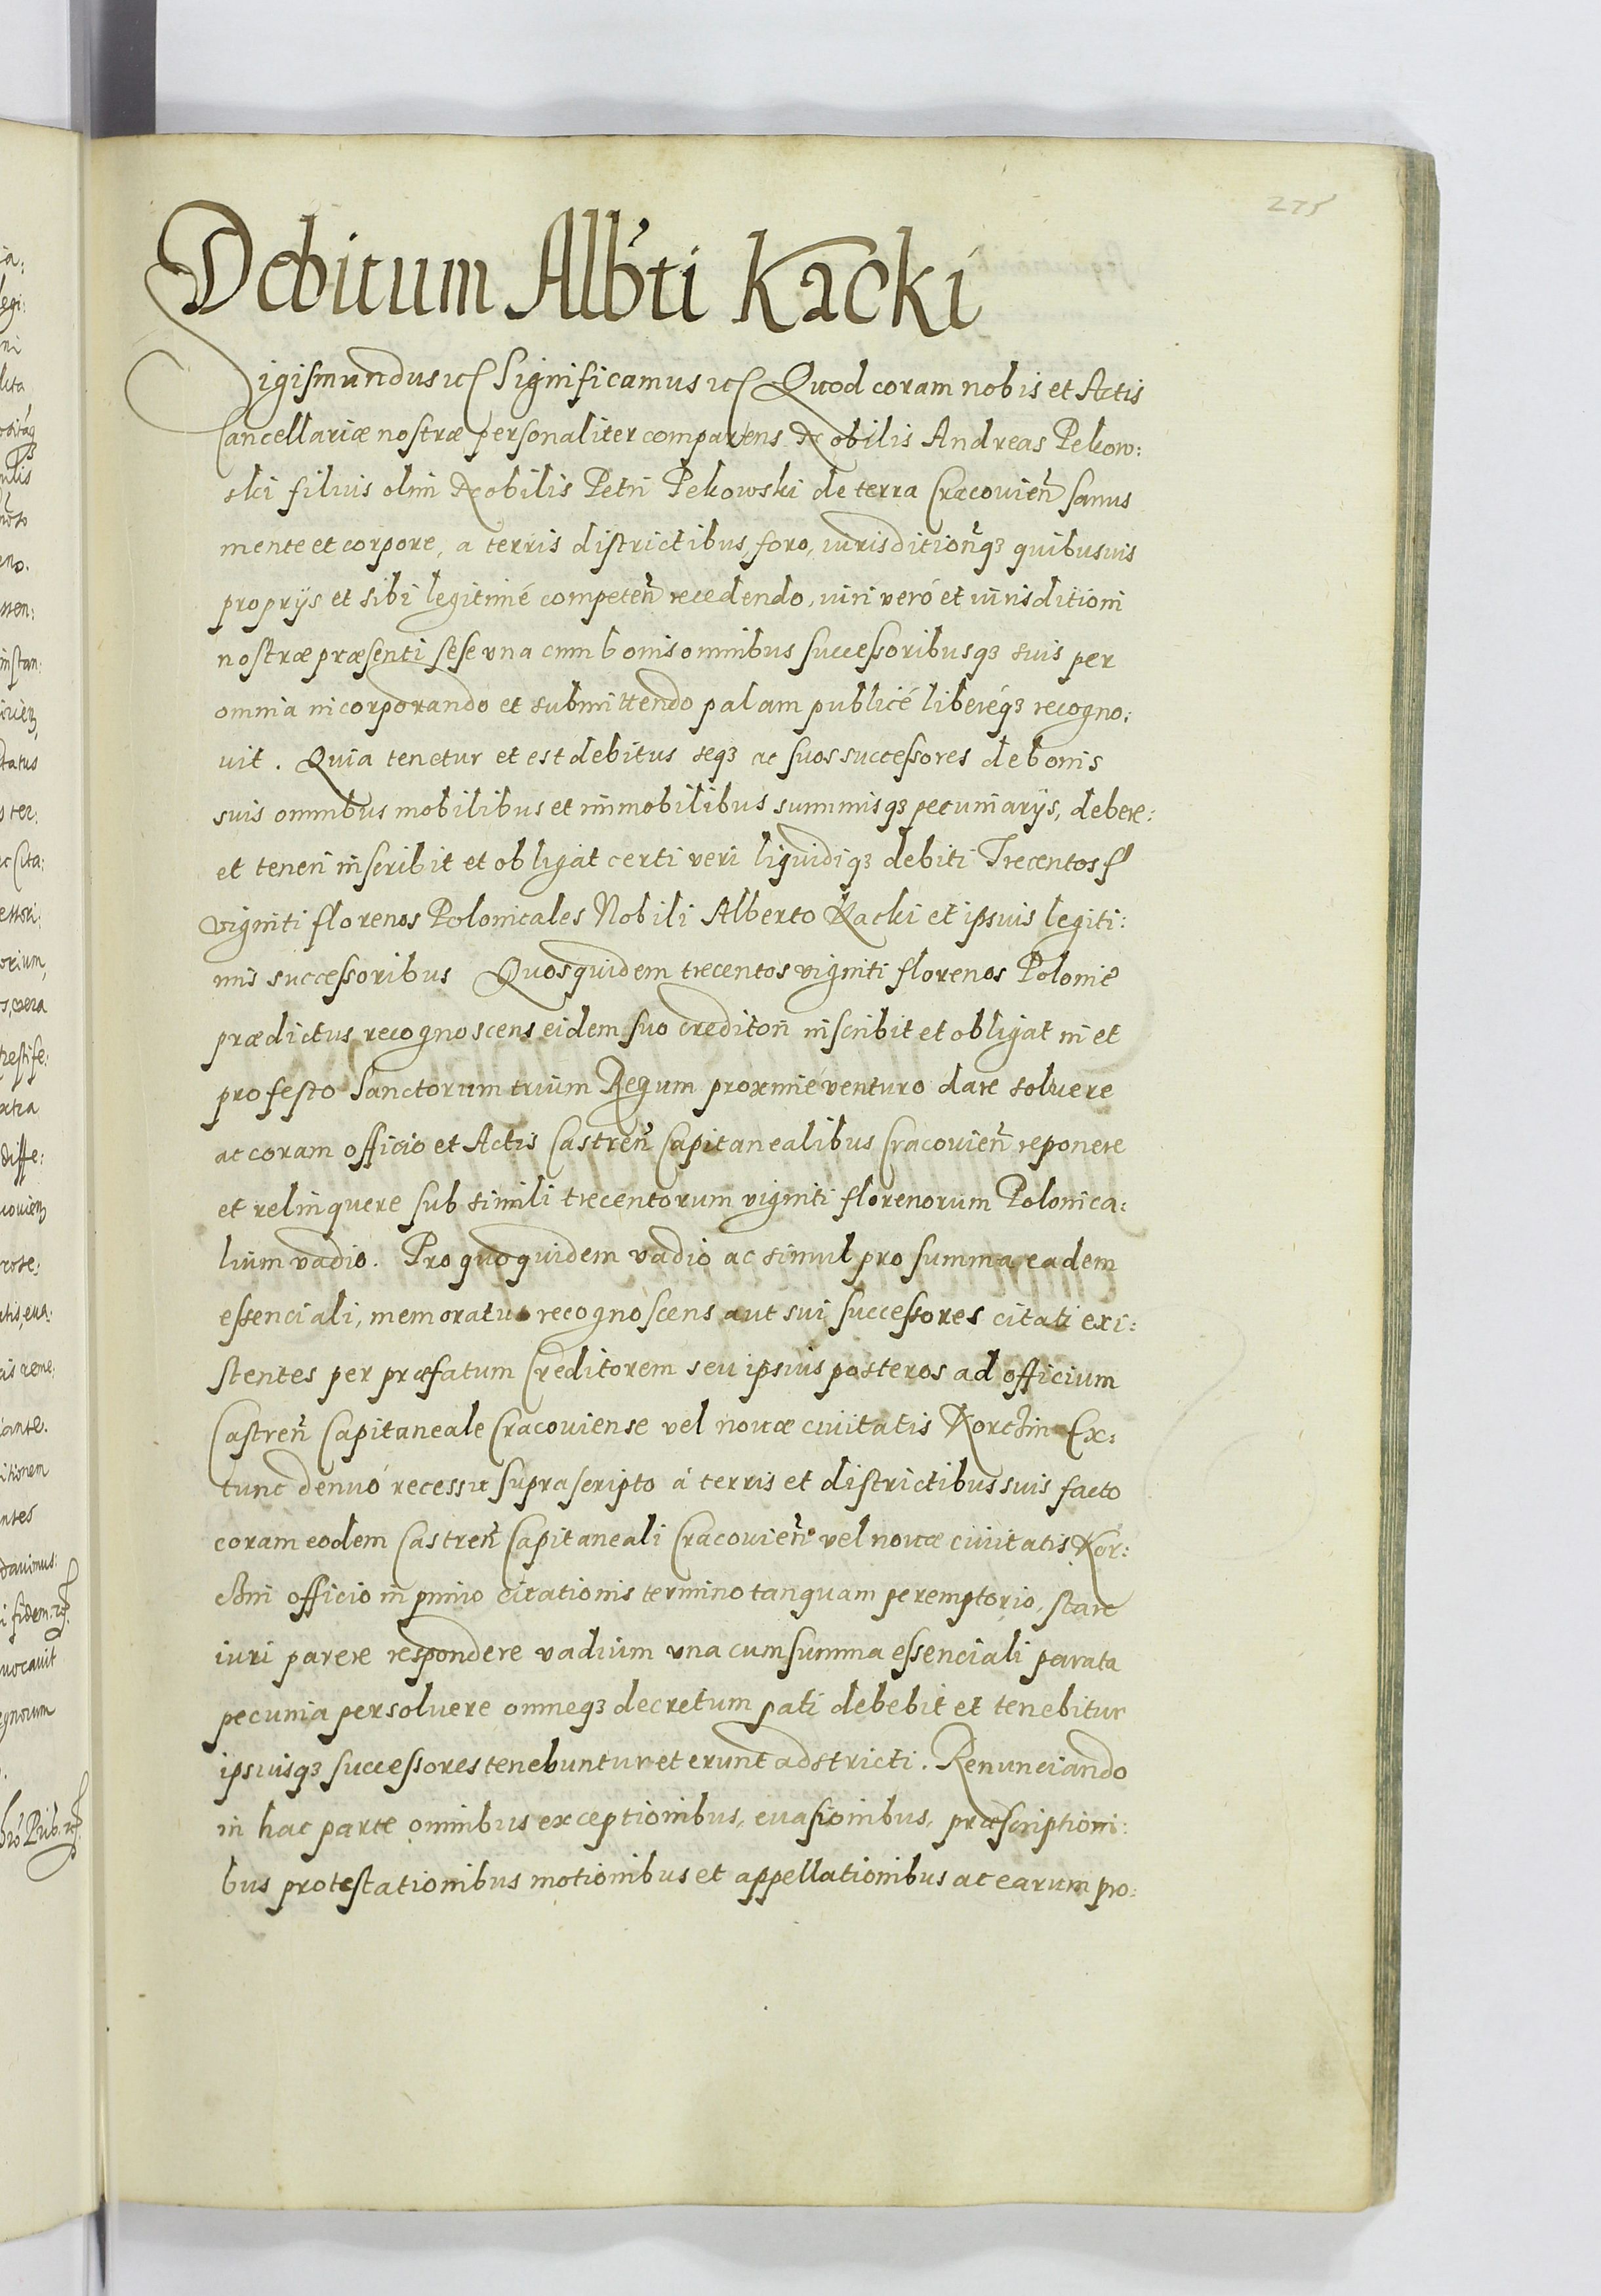 275
Debitum Alb'ti Kacki
Sigismundus etc Significamus etc Quod coram nobis et Actis
Cancellariæ nostræ personaliter comparens Nobilis Andreas Pekow:
ski filius olim Nobilis Petri Pekowski de terra Cracovien̄ sanus
mente et corpore, a terris districtibus, foro, iurisdition̄q3 quibusuis
proprijs et sibi legitimé competen̄ recedendo, iuri veró et iurisditioni
nostræ præsenti sese vna cum bonis omnibus successoribusq3 suis per
omnia incorporando et submittendo palam publicé liberéq3 recogno:
uit. Quia tenetur et est debitus seq3 ac suos successores de bonis
suis omnibus mobilibus et immobilibus summisq3 pecuniarijs, debere:
et teneri inscribit et obligat certi veri liquidiq3 debiti Trecentos fl
viginti florenos Polonicales Nobili Alberto Kacki et ipsius legiti:
mis successoribus Quosquidem trecentos viginti florenos Polonic̄
prædictus recognoscens eidem suo creditori inscribit et obligat in et
pro festo Sanctorum trium Regum proximé venturo dare soluere
ac coram officio et Actis Castren̄ Capitanealibus Cracouien̄ reponere
et relinquere sub simili trecentorum viginti florenorum Polonica:
lium vadio. Pro quoquidem vadio ac simul pro summa eadem
essenciali, memoratus recognoscens aut sui successores citati exi:
stentes per præfatum Creditorem seu ipsius posteros ad officium
Castren̄ Capitaneale Cracouiense vel nouæ ciuitatis Korchin Ex:
tunc denuó recessu suprascripto á terris et districtibus suis facto
coram eodem Castren̄ Capitaneali Cracouien̄ vel nouæ ciuitatis Kor:
chin officio in primo citationis termino tanquam peremptorio, stare
iuri parere respondere vadium vna cum summa essenciali parata
pecunia persoluere omneq3 decretum pati debebit et tenebitur
ipsiusq3 successores tenebuntur et erunt adstricti. Renunciando
in hac parte omnibus exceptionibus, euasionibus, præscriptioni:
bus protestationibus motionibus et appellationibus ac earum pro: